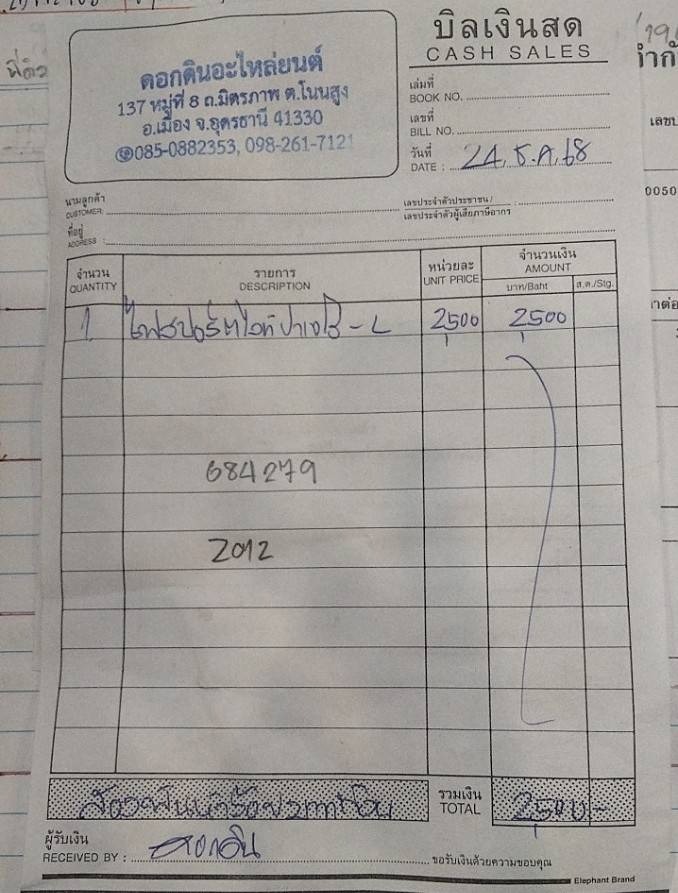 บิลเงินสด
CASH SALES
ดอกดินอะไหล่ยนต์
137 หมู่ที่ 8 ถ.มิตรภาพ ต.โนนสูง
อ.เมือง จ.อุดรธานี 41330
085-0882353, 098-261-7121
เล่มที่
BOOK NO.
เลขที่
BILL NO.
วันที่
DATE : 24, ธ.ค, 68
นามลูกค้า
CUSTOMER
เลขประจำตัวประชาชน /
เลขประจำตัวผู้เสียภาษีอากร
ที่อยู่
ADDRESS
จำนวน รายการ หน่วยละ จำนวนเงิน
QUANTITY DESCRIPTION UNIT PRICE AMOUNT
บาท/Baht ส.ต./Stg.
1 ไฟสปอร์ตไลท์ ปาเจโร่ - L 2500 2500
684279
2012
รวมเงิน
TOTAL 2500.-
สองพันห้าร้อยบาทถ้วน
ผู้รับเงิน
RECEIVED BY : ดอกดิน
ขอรับเงินด้วยความขอบคุณ
Elephant Brand
0050